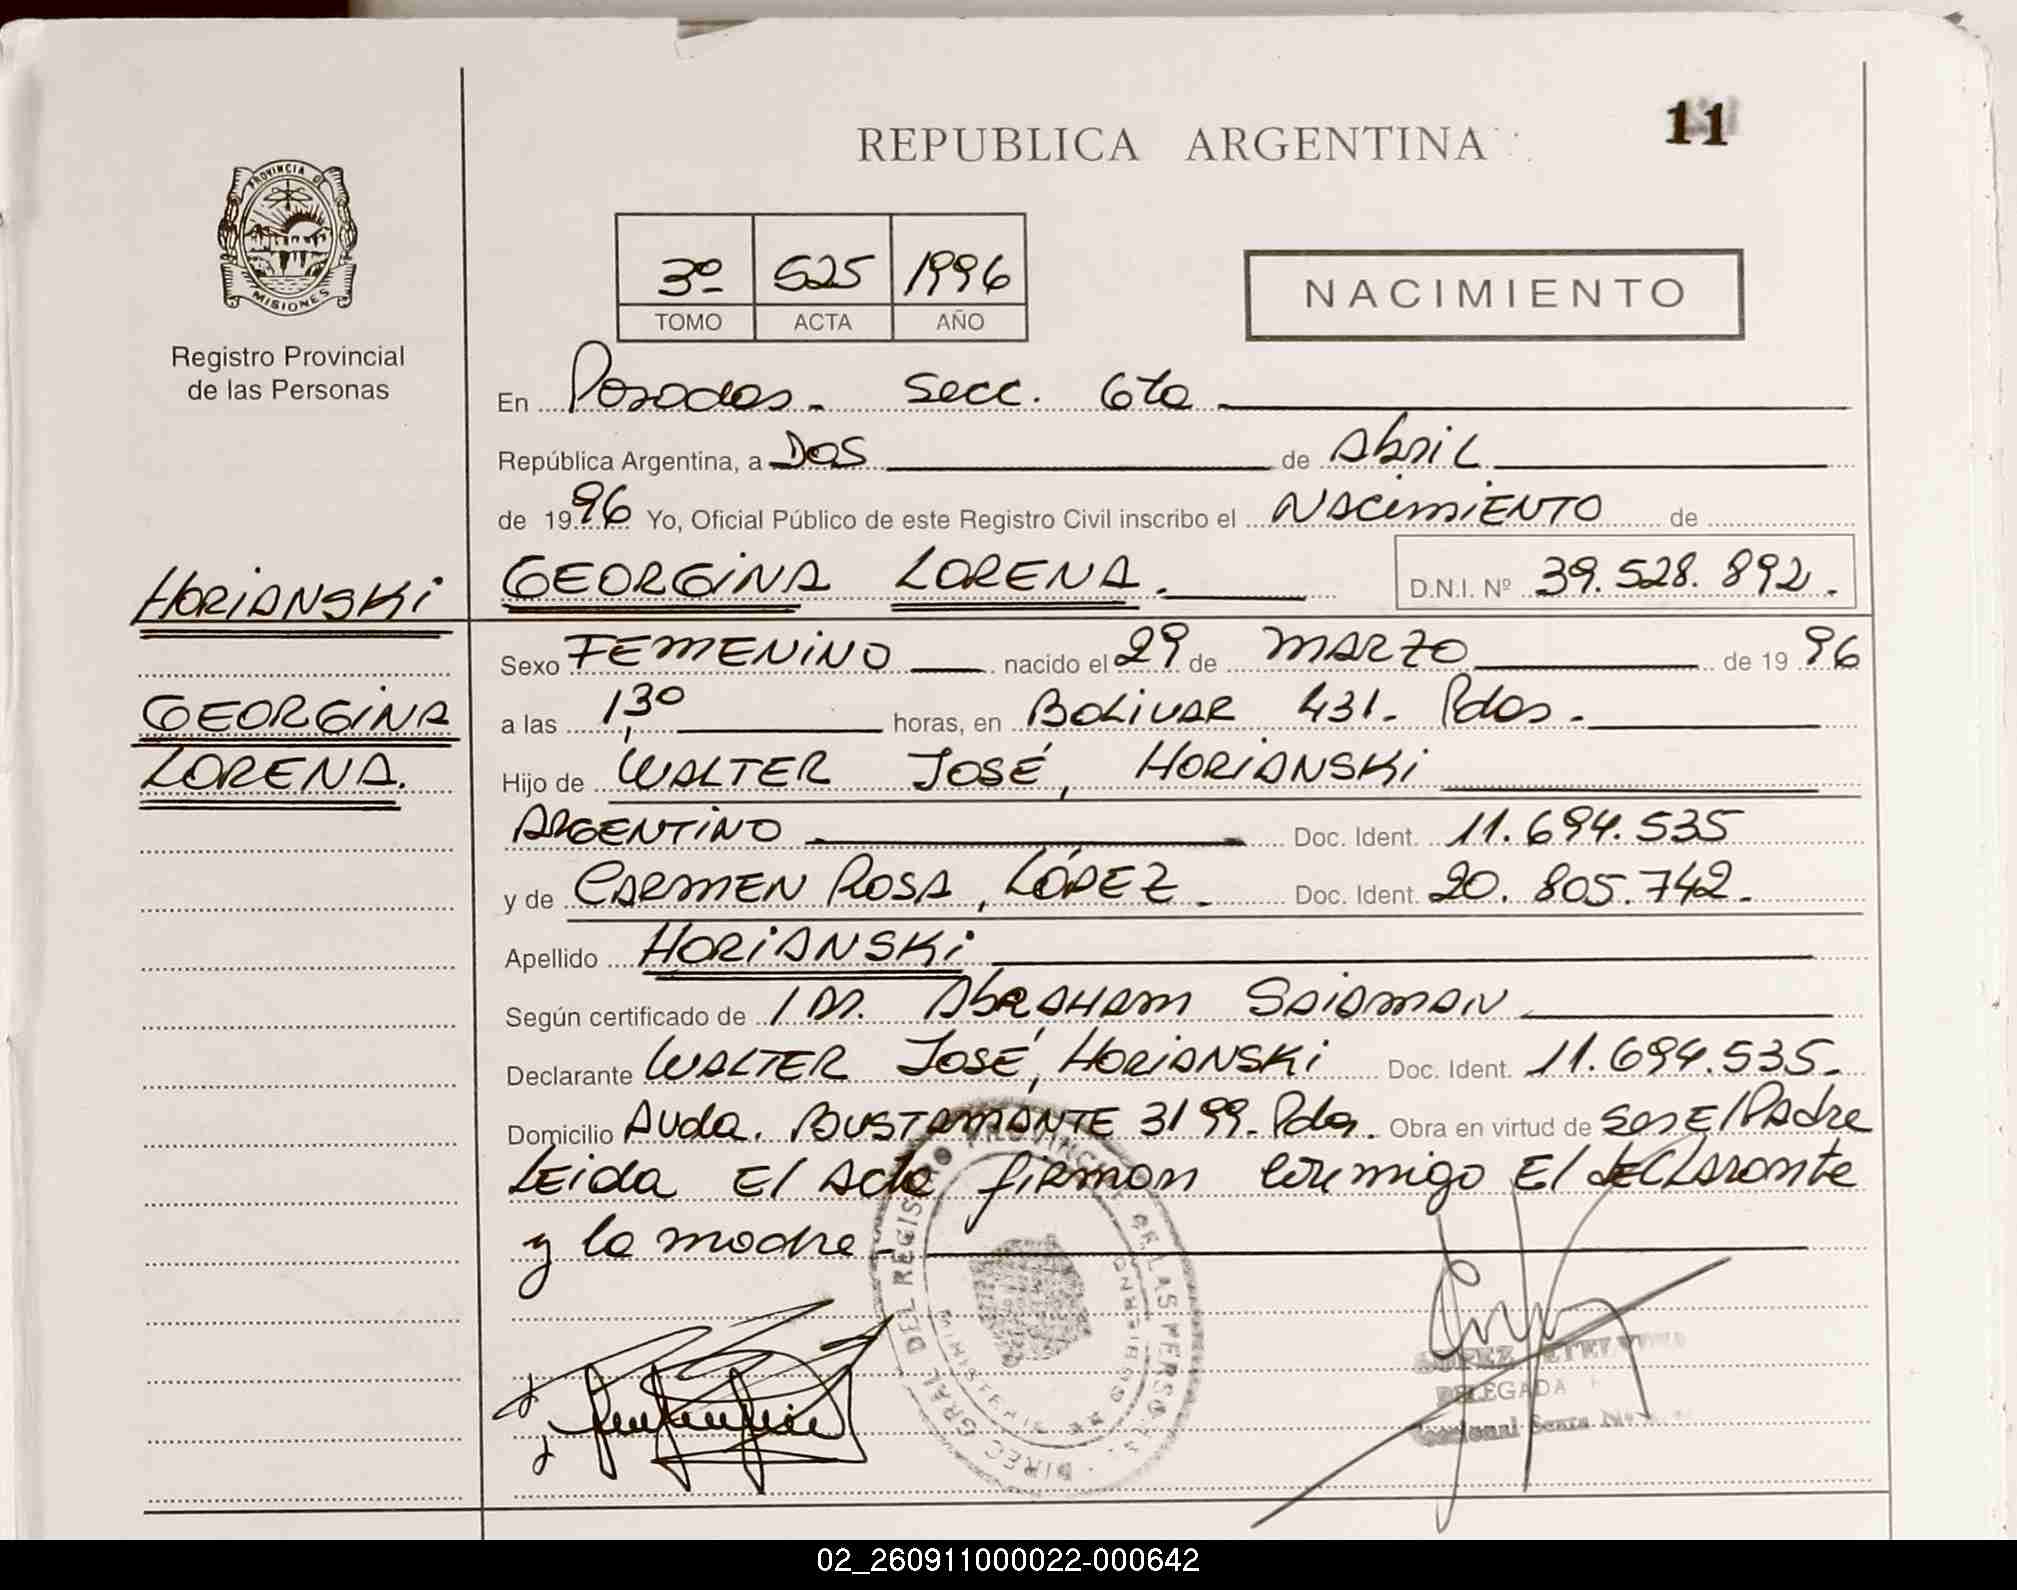 REPUBLICA ARGENTINA
11
PROVINCIA DE
MISIONES
Registro Provincial
de las Personas
3º 525 1996
TOMO ACTA AÑO
NACIMIENTO
En Posadas - Secc. 6ta
República Argentina, a Dos de Abril
de 1996 Yo, Oficial Público de este Registro Civil inscribo el NACIMIENTO de
HORIANSKI
GEORGINA LORENA. D.N.I. Nº 39.528.892.
GEORGINA
LORENA.
Sexo FEMENINO nacido el 29 de MARZO de 1996
a las 1,30 horas, en BOLIVAR 431. Pdas.
Hijo de WALTER JOSÉ, HORIANSKI
ARGENTINO Doc. Ident. 11.694.535
y de CARMEN ROSA, LÓPEZ. Doc. Ident. 20.805.742.
Apellido HORIANSKI
Según certificado de / DR. ABRAHAM SAIDMAN
Declarante WALTER JOSÉ, HORIANSKI Doc. Ident. 11.694.535.
Domicilio Avda. BUSTAMANTE 3199. Pdas. Obra en virtud de ser El Padre
Leida El Acta firman conmigo El declarante
y la madre -
DIREC. GRAL. DEL REGISTRO PROVINC. DE LAS PERSONAS
MISIONES
LOPEZ
DELEGADA
Seccional Sexta
02_260911000022-000642